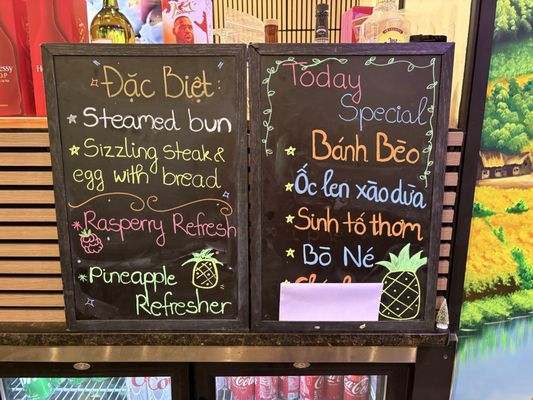 Đặc Biệt
Steamed bun
Sizzling steak &
egg with bread
Rasperry Refresh
Pineapple
Refresher
Today
Special
Bánh Bèo
Ốc len xào dừa
Sinh tố thơm
Bò Né
Coca-Cola